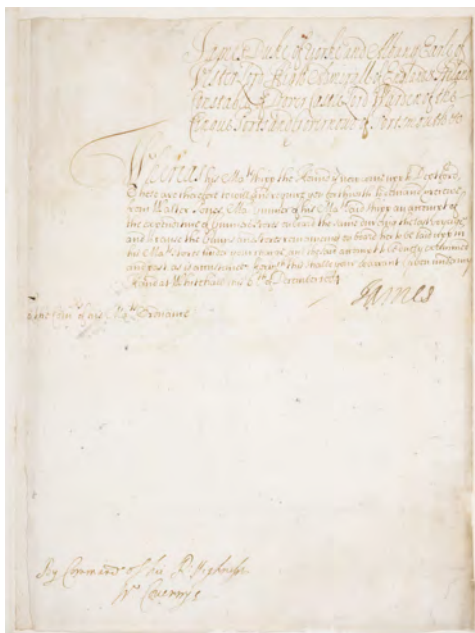 James Duke of Yorke and Albany Earle of
Ulster Lord High Admirall of England Ireland
Constable of Dover Castle Lord Warden of the
Cinque Ports and Governour of Portsmouth &c
Whereas his Ma.ts Shipp the Henry is near Deptford
These are therefore to will and require you forthwith to demand and receive
from Walter Jones Ma.r Gunner of his Ma.ts said Shipp an account of
the expence of Gunners Stores on board the same dureing the last voyage
and to cause the Gunns and Stores remaineing on board her to be laid upp in
his Ma.ts Stores under your charge, and the said account to bee by examined
and past as is accustomed. for which this shalbe your Warrant. Given under my
Hand at Whitehall this 6.th of December 1664
James
To the Com.rs of his Ma.ts Ordnance
By Command of his R. Highness
W. Coventry